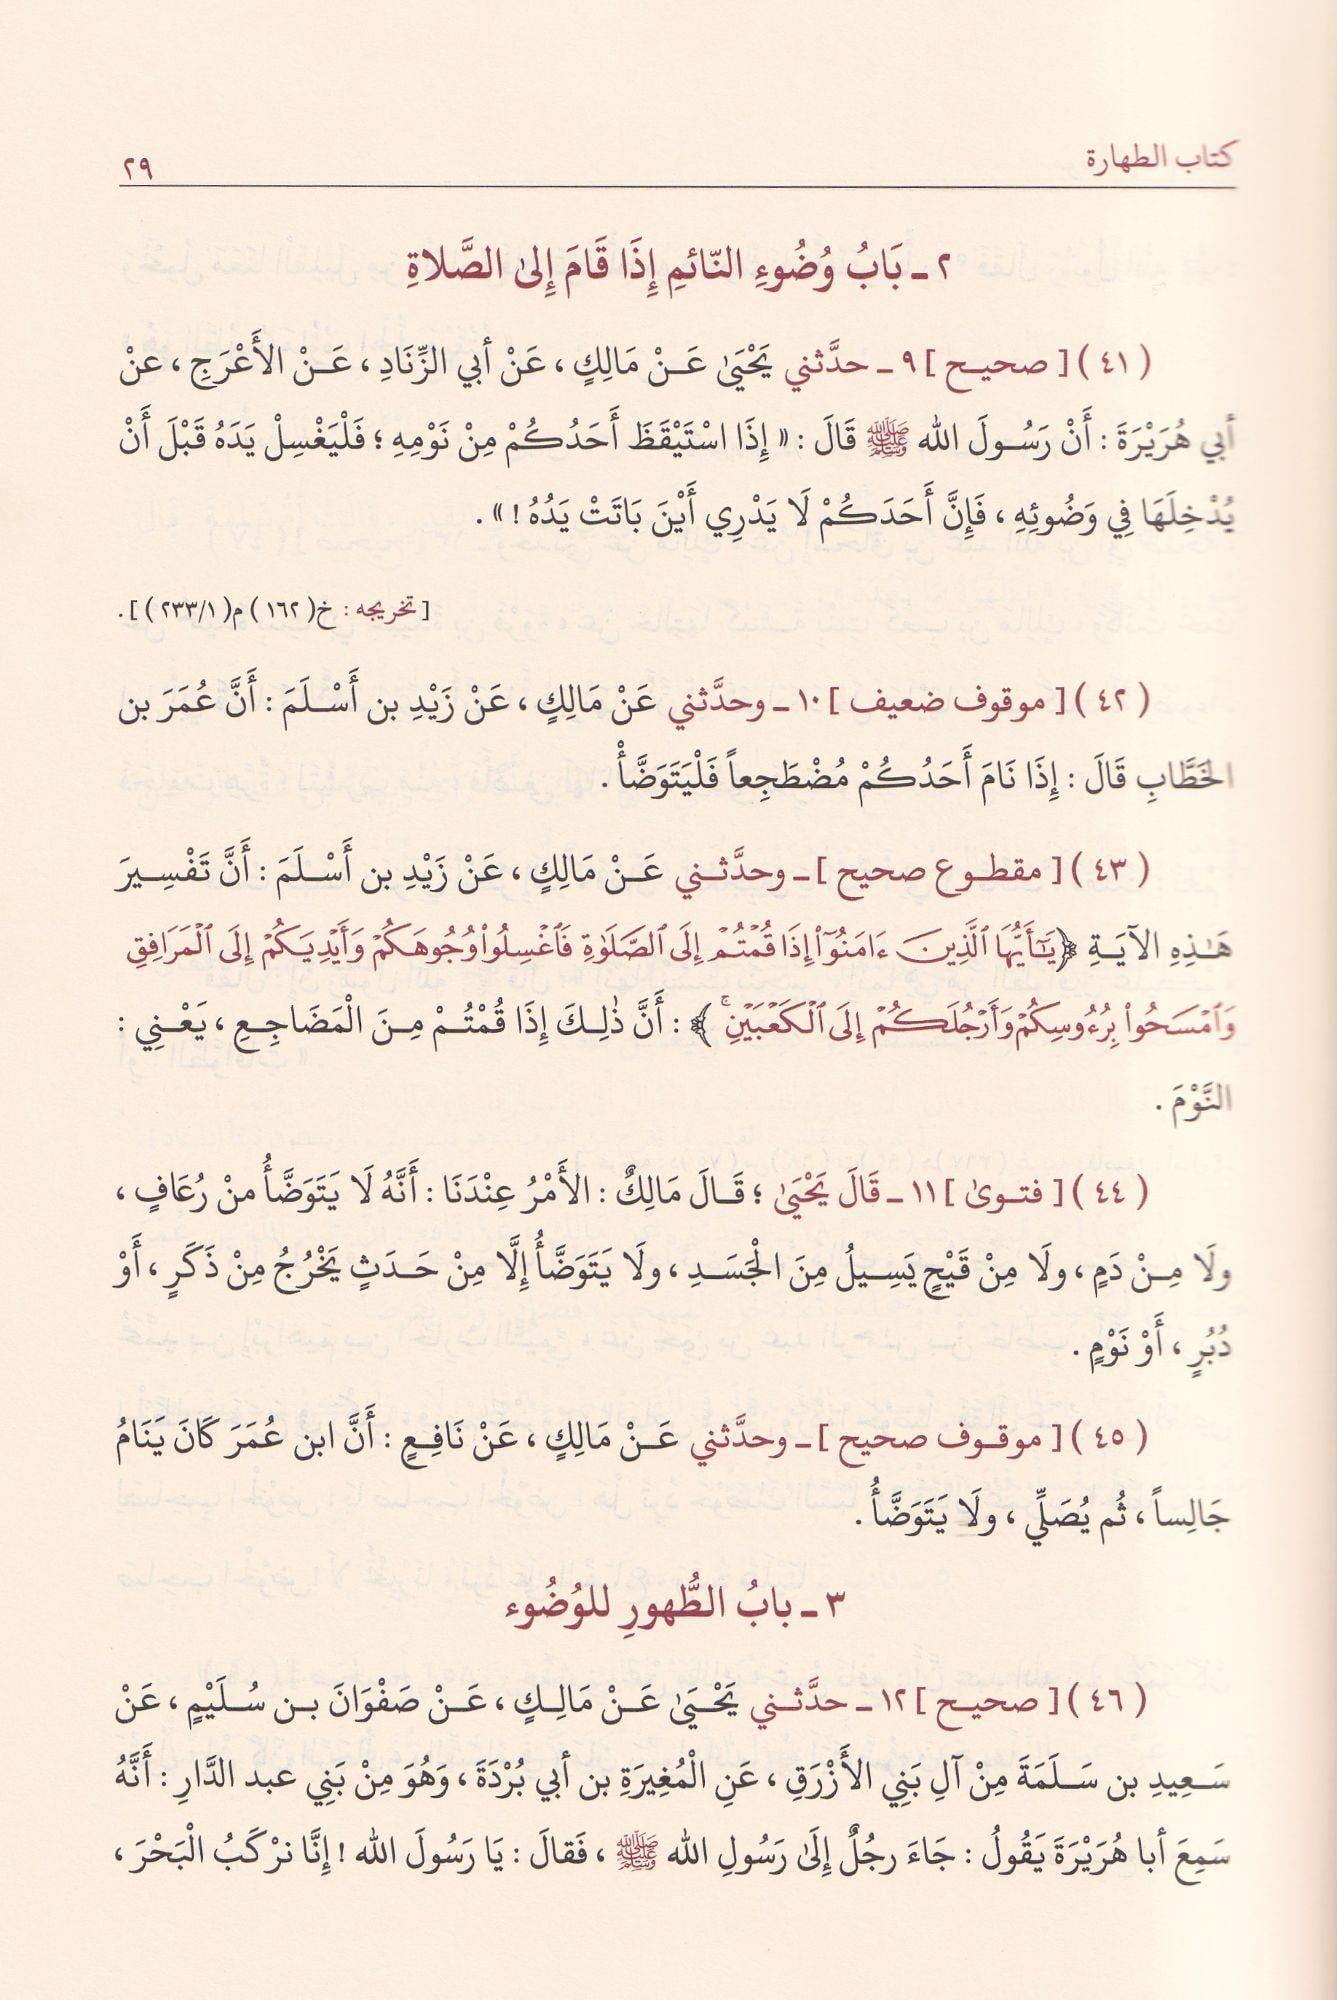 كتاب الطهارة ٢٩
٢ ـ بَابُ وُضُوءِ النّائمِ إِذَا قَامَ إِلىٰ الصَّلاةِ
( ٤١ ) [ صحيح ] ٩ ـ حدَّثني يَحْيَىٰ عَنْ مَالِكٍ ، عَنْ أبي الزِّنَادِ ، عَنْ الأَعْرَجِ ، عنْ
أبي هُرَيْرَةَ : أَنْ رَسُولَ الله ﷺ قَالَ : « إِذَا اسْتَيْقَظَ أَحَدُكُمْ مِنْ نَوْمِهِ ؛ فَلْيَغْسِلْ يَدَهُ قَبْلَ أَنْ
يُدْخِلَهَا فِي وَضُوئِهِ ، فَإِنَّ أَحَدَكُمْ لَا يَدْرِي أَيْنَ بَاتَتْ يَدُهُ ! » .
[ تخريجه : خ( ١٦٢ ) م( ٢٣٣/١ ) ] .
( ٤٢ ) [ موقوف ضعيف ] ١٠ ـ وحدَّثني عَنْ مَالِكٍ ، عَنْ زَيْدِ بن أَسْلَمَ : أَنَّ عُمَرَ بن
الخَطَّابِ قَالَ : إِذَا نَامَ أَحَدُكُمْ مُضْطَجِعاً فَلْيَتَوَضَّأْ .
( ٤٣ ) [ مقطوع صحيح ] ـ وحدَّثني عَنْ مَالِكٍ ، عَنْ زَيْدِ بن أَسْلَمَ : أَنَّ تَفْسِيرَ
هَـٰذِهِ الآيَةِ ﴿يَـٰٓأَيُّهَا ٱلَّذِينَ ءَامَنُوٓا۟ إِذَا قُمْتُمْ إِلَى ٱلصَّلَوٰةِ فَٱغْسِلُوا۟ وُجُوهَكُمْ وَأَيْدِيَكُمْ إِلَى ٱلْمَرَافِقِ
وَٱمْسَحُوا۟ بِرُءُوسِكُمْ وَأَرْجُلَكُمْ إِلَى ٱلْكَعْبَيْنِۚ﴾ : أَنَّ ذٰلِكَ إِذَا قُمْتُمْ مِنَ الْمَضَاجِعِ ، يَعْنِي :
النَّوْمَ .
( ٤٤ ) [ فتوىٰ ] ١١ ـ قَالَ يَحْيَىٰ ؛ قَالَ مَالِكٌ : الأَمْرُ عِنْدَنَا : أَنَّهُ لَا يَتَوَضَّأُ منْ رُعَافٍ ،
ولَا مِنْ دَمٍ ، ولَا مِنْ قَيْحٍ يَسِيلُ مِنَ الْجَسَدِ ، ولَا يَتَوَضَّأُ إِلَّا مِنْ حَدَثٍ يَخْرُجُ مِنْ ذَكَرٍ ، أَوْ
دُبُرٍ ، أَوْ نَوْمٍ .
( ٤٥ ) [ موقوف صحيح ] ـ وحدَّثني عَنْ مَالِكٍ ، عَنْ نَافِعٍ : أَنَّ ابن عُمَرَ كَانَ يَنَامُ
جَالِساً ، ثُم يُصَلِّي ، ولَا يَتَوَضَّأُ .
٣ ـ بابُ الطُّهورِ للوُضُوء
( ٤٦ ) [ صحيح ] ١٢ ـ حدَّثني يَحْيَىٰ عَنْ مَالِكٍ ، عَنْ صَفْوَانَ بن سُلَيْمٍ ، عَنْ
سَعِيدِ بن سَلَمَةَ مِنْ آلِ بَنِي الأَزْرَقِ ، عَنِ الْمُغِيرَةِ بن أبي بُرْدَةَ ، وَهُوَ مِنْ بَنِي عبد الدَّارِ : أَنَّهُ
سَمِعَ أبا هُرَيْرَةَ يَقُولُ : جَاءَ رجُلٌ إِلَىٰ رَسُولِ الله ﷺ ، فَقالَ : يَا رَسُولَ الله ! إِنَّا نرْكَبُ الْبَحْرَ ،